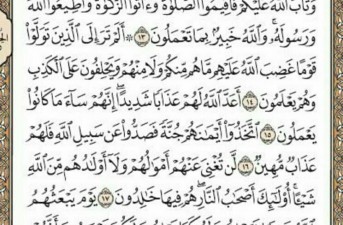 وَتَابَ ٱللَّهُ عَلَيْكُمْ فَأَقِيمُوا۟ ٱلصَّلَوٰةَ وَءَاتُوا۟ ٱلزَّكَوٰةَ وَأَطِيعُوا۟ ٱللَّهَ
وَرَسُولَهُۥ ۚ وَٱللَّهُ خَبِيرٌۢ بِمَا تَعْمَلُونَ ١٣ ۞ أَلَمْ تَرَ إِلَى ٱلَّذِينَ تَوَلَّوْا۟
قَوْمًا غَضِبَ ٱللَّهُ عَلَيْهِم مَّا هُم مِّنكُمْ وَلَا مِنْهُمْ وَيَحْلِفُونَ عَلَى ٱلْكَذِبِ
وَهُمْ يَعْلَمُونَ ١٤ أَعَدَّ ٱللَّهُ لَهُمْ عَذَابًا شَدِيدًا ۖ إِنَّهُمْ سَآءَ مَا كَانُوا۟
يَعْمَلُونَ ١٥ ٱتَّخَذُوٓا۟ أَيْمَٰنَهُمْ جُنَّةً فَصَدُّوا۟ عَن سَبِيلِ ٱللَّهِ فَلَهُمْ
عَذَابٌ مُّهِينٌ ١٦ لَّن تُغْنِىَ عَنْهُمْ أَمْوَٰلُهُمْ وَلَآ أَوْلَٰدُهُم مِّنَ ٱللَّهِ
شَيْـًٔا ۚ أُو۟لَٰٓئِكَ أَصْحَٰبُ ٱلنَّارِ ۖ هُمْ فِيهَا خَٰلِدُونَ ١٧ يَوْمَ يَبْعَثُهُمُ